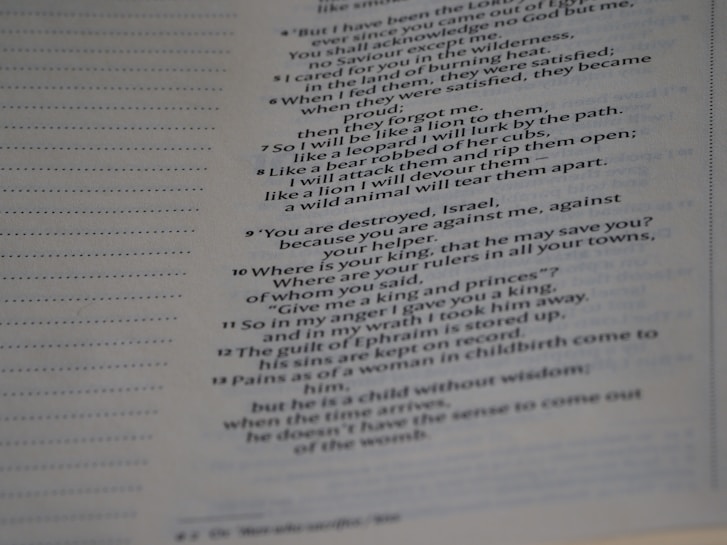 like smoke
4 ‘But I have been the LORD
ever since you came out of Egypt.
You shall acknowledge no God but me,
no Saviour except me.
5 I cared for you in the wilderness,
in the land of burning heat.
6 When I fed them, they were satisfied;
when they were satisfied, they became
proud;
then they forgot me.
7 So I will be like a lion to them,
like a leopard I will lurk by the path.
8 Like a bear robbed of her cubs,
I will attack them and rip them open;
like a lion I will devour them –
a wild animal will tear them apart.
9 ‘You are destroyed, Israel,
because you are against me, against
your helper.
10 Where is your king, that he may save you?
Where are your rulers in all your towns,
of whom you said,
“Give me a king and princes”?
11 So in my anger I gave you a king,
and in my wrath I took him away.
12 The guilt of Ephraim is stored up,
his sins are kept on record.
13 Pains as of a woman in childbirth come to
him,
but he is a child without wisdom;
when the time arrives,
he doesn’t have the sense to come out
of the womb.
2 Or ‘Men who sacrifice / kiss